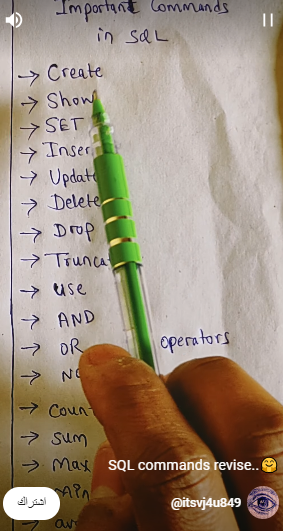 Important Commands
in SQL
→ Create
→ Show
→ SET
→ Inser
→ Update
→ Delete
→ Drop
→ Trunca
→ use
→ AND
→ OR operators
→ NO
→ Coun
→ Sum
→ Max
Min
SQL commands revise..🤗
اشتراك
@itsvj4u849